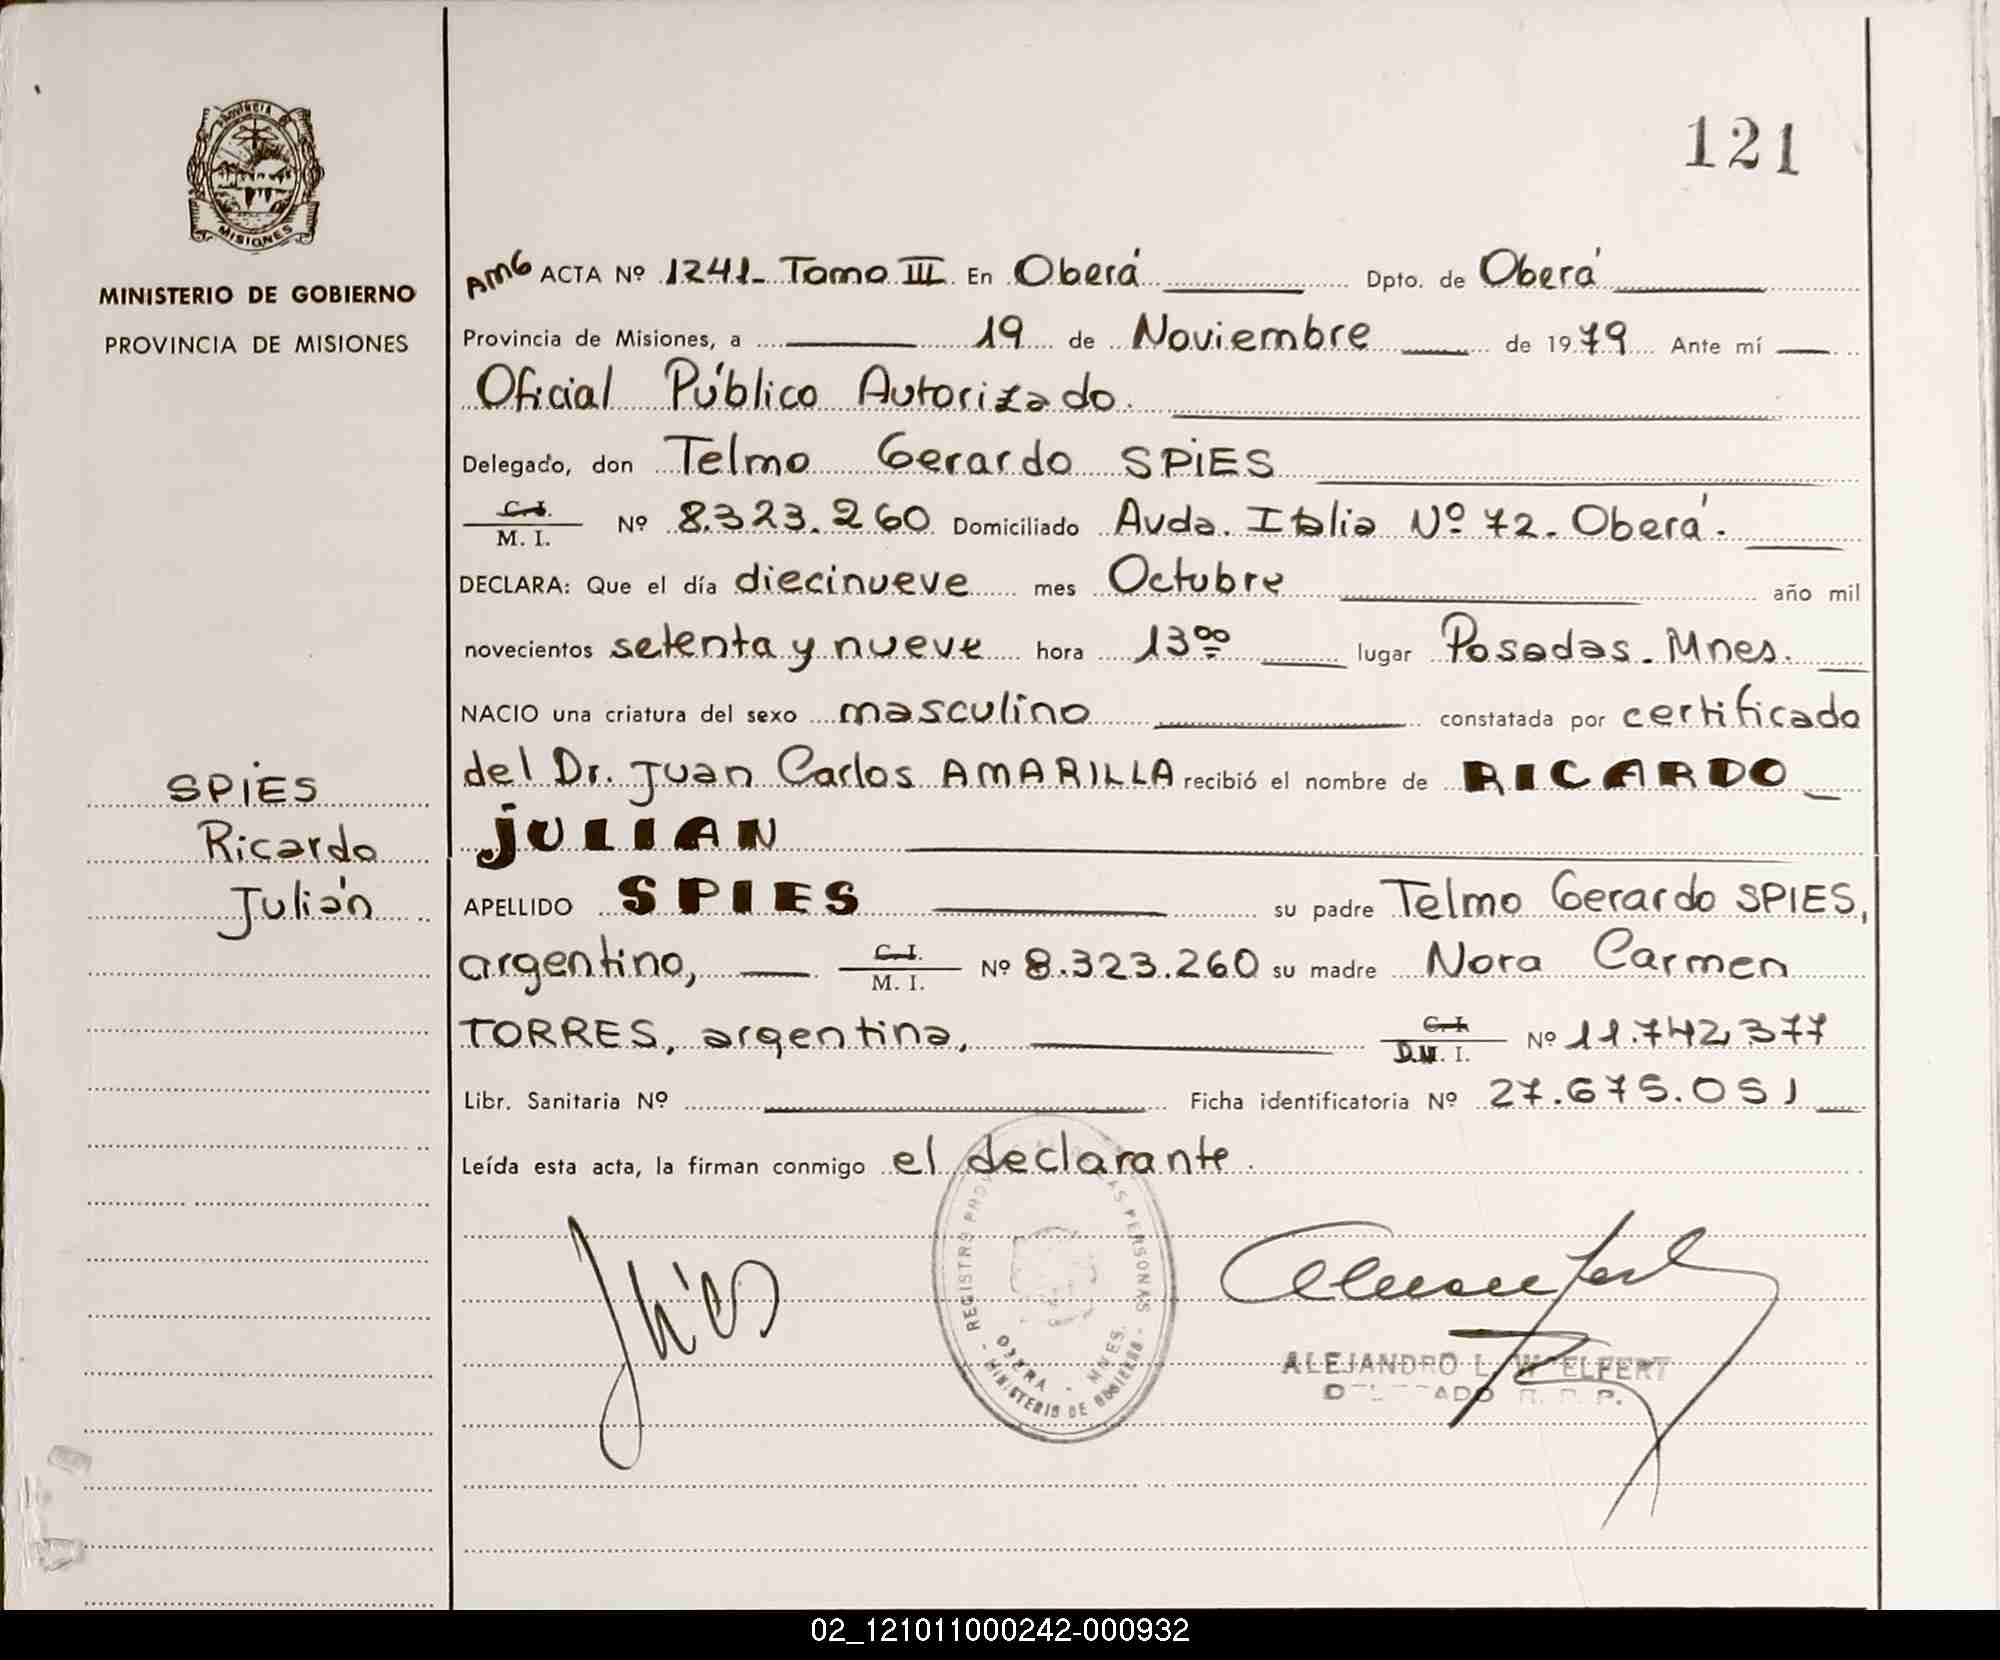 121
PROVINCIA
MISIONES
MINISTERIO DE GOBIERNO
PROVINCIA DE MISIONES
AMG ACTA Nº 1241- Tomo III En Oberá Dpto. de Oberá
Provincia de Misiones, a 19 de Noviembre de 1979 Ante mí
Oficial Público Autorizado.
Delegado, don Telmo Gerardo SPiES
C. I.
M. I. Nº 8.323.260 Domiciliado Avda. Italia Nº 72- Oberá.
DECLARA: Que el día diecinueve mes Octubre año mil
novecientos setenta y nueve hora 13⁰⁰ lugar Posadas. Mnes.
NACIO una criatura del sexo masculino constatada por certificado
del Dr. Juan Carlos AMARILLA recibió el nombre de RICARDO
JULIAN
SPiES
Ricardo
Julián
APELLIDO SPIES su padre Telmo Gerardo SPIES,
argentino, C. I.
M. I. Nº 8.323.260 su madre Nora Carmen
TORRES, argentina, C. I.
D.N. I. Nº 11.742,377
Libr. Sanitaria Nº Ficha identificatoria Nº 27.675.051
Leída esta acta, la firman conmigo el declarante.
REGISTRO PROV. PERSONAS
OBERA - MNES.
- MINISTERIO DE GOBIERNO -
ALEJANDRO L. WOELFERT
DELEGADO R. P. P.
02_121011000242-000932